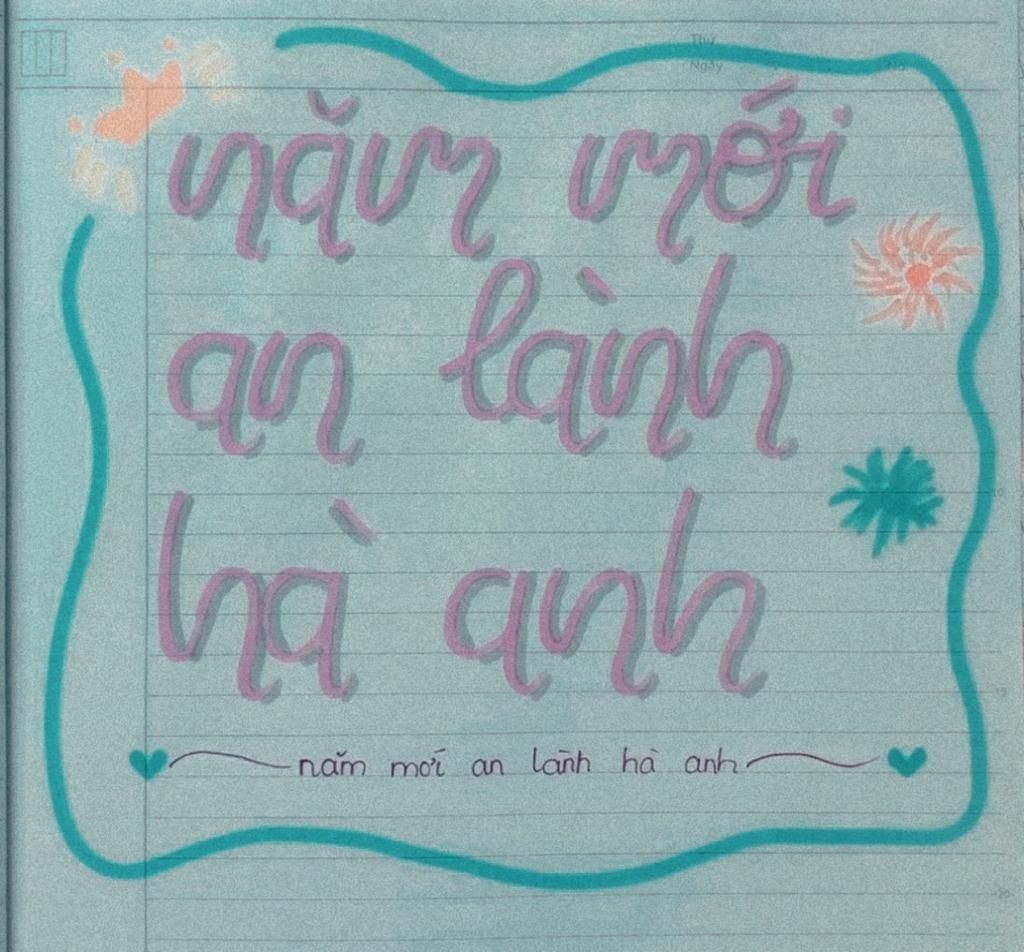 Thứ
Ngày No.
năm mới
an lành
hà anh
10
15
năm mới an lành hà anh
20